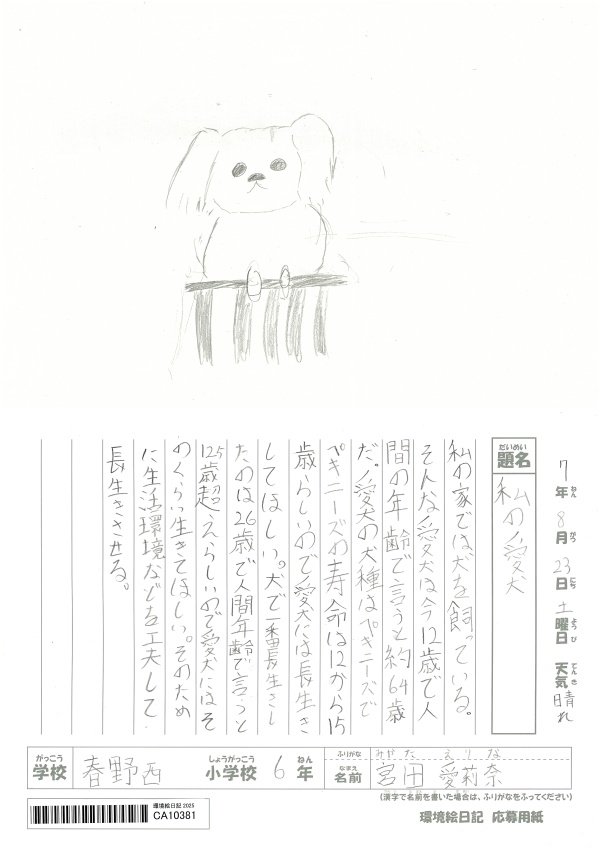 7年ねん 8月がつ 23日にち 土曜日ようび 天気てんき 晴れ
だいめい
題名
私の愛犬
私の家では犬を飼っている。
そんな愛犬は今12歳で人
間の年齢で言うと約64歳
だ。愛犬の犬種はペキニーズで
ペキニーズの寿命は12から15
歳らしいので愛犬には長生き
してほしい。犬で一番長生きし
たのは26歳で人間年齢で言うと
125歳超えらしいので愛犬にはそ
のくらい生きてほしい。そのため
に生活環境などを工夫して
長生きさせる。
がっこう
学校
春野西
しょうがっこう
小学校
6
ねん
年
ふりがな
みやた えりな
なまえ
名前
宮田 愛莉奈
(漢字で名前を書いた場合は、ふりがなをふってください)
環境絵日記 2025
CA10381
環境絵日記 応募用紙